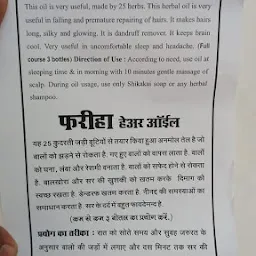 This oil is very useful, made by 25 herbs. This herbal oil is very
useful in falling and premature repairing of hairs. It makes hairs
long, silky and glowing. It is dandruff remover. It keeps brain
cool. Very useful in uncomfortable sleep and headache. (Full
course 3 bottles) Direction of Use : According to need, use oil at
sleeping time & in morning with 10 minutes gentle massage of
scalp. During oil usage, use only Shikakai soap or any herbal
shampoo.
फरीहा हेअर ऑईल
यह 25 कुदरती जड़ी बूटियों से तयार किया हुआ अनमोल तेल है जो
बालों को झड़ने से रोकता है. गए हुए बालों को वापस लाता है. बालों
को घना, लंबा और रेशमी बनाता है. बालों को सफेद होने से रोकता
है. बालखोरा और सर की खुश्की को खतम करके दिमाग को
स्वच्छ रखता है. डेन्डरफ खतम करता है. नींवद की समस्याओं का
समाधान करता है. सर के दर्द में बहुत फायदेमन्द है.
(कम से कम 3 बोतल का प्रयोग करें.)
प्रयोग का तरीका : रात को सोते समय और सुबह जरूरत के
अनुसार बालों की जड़ों में लगाए और दस मिनट तक सर की